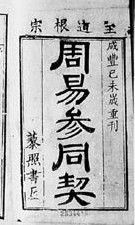 至道根宗
咸豐己未歲重刊
周易參同契
藜照書屋